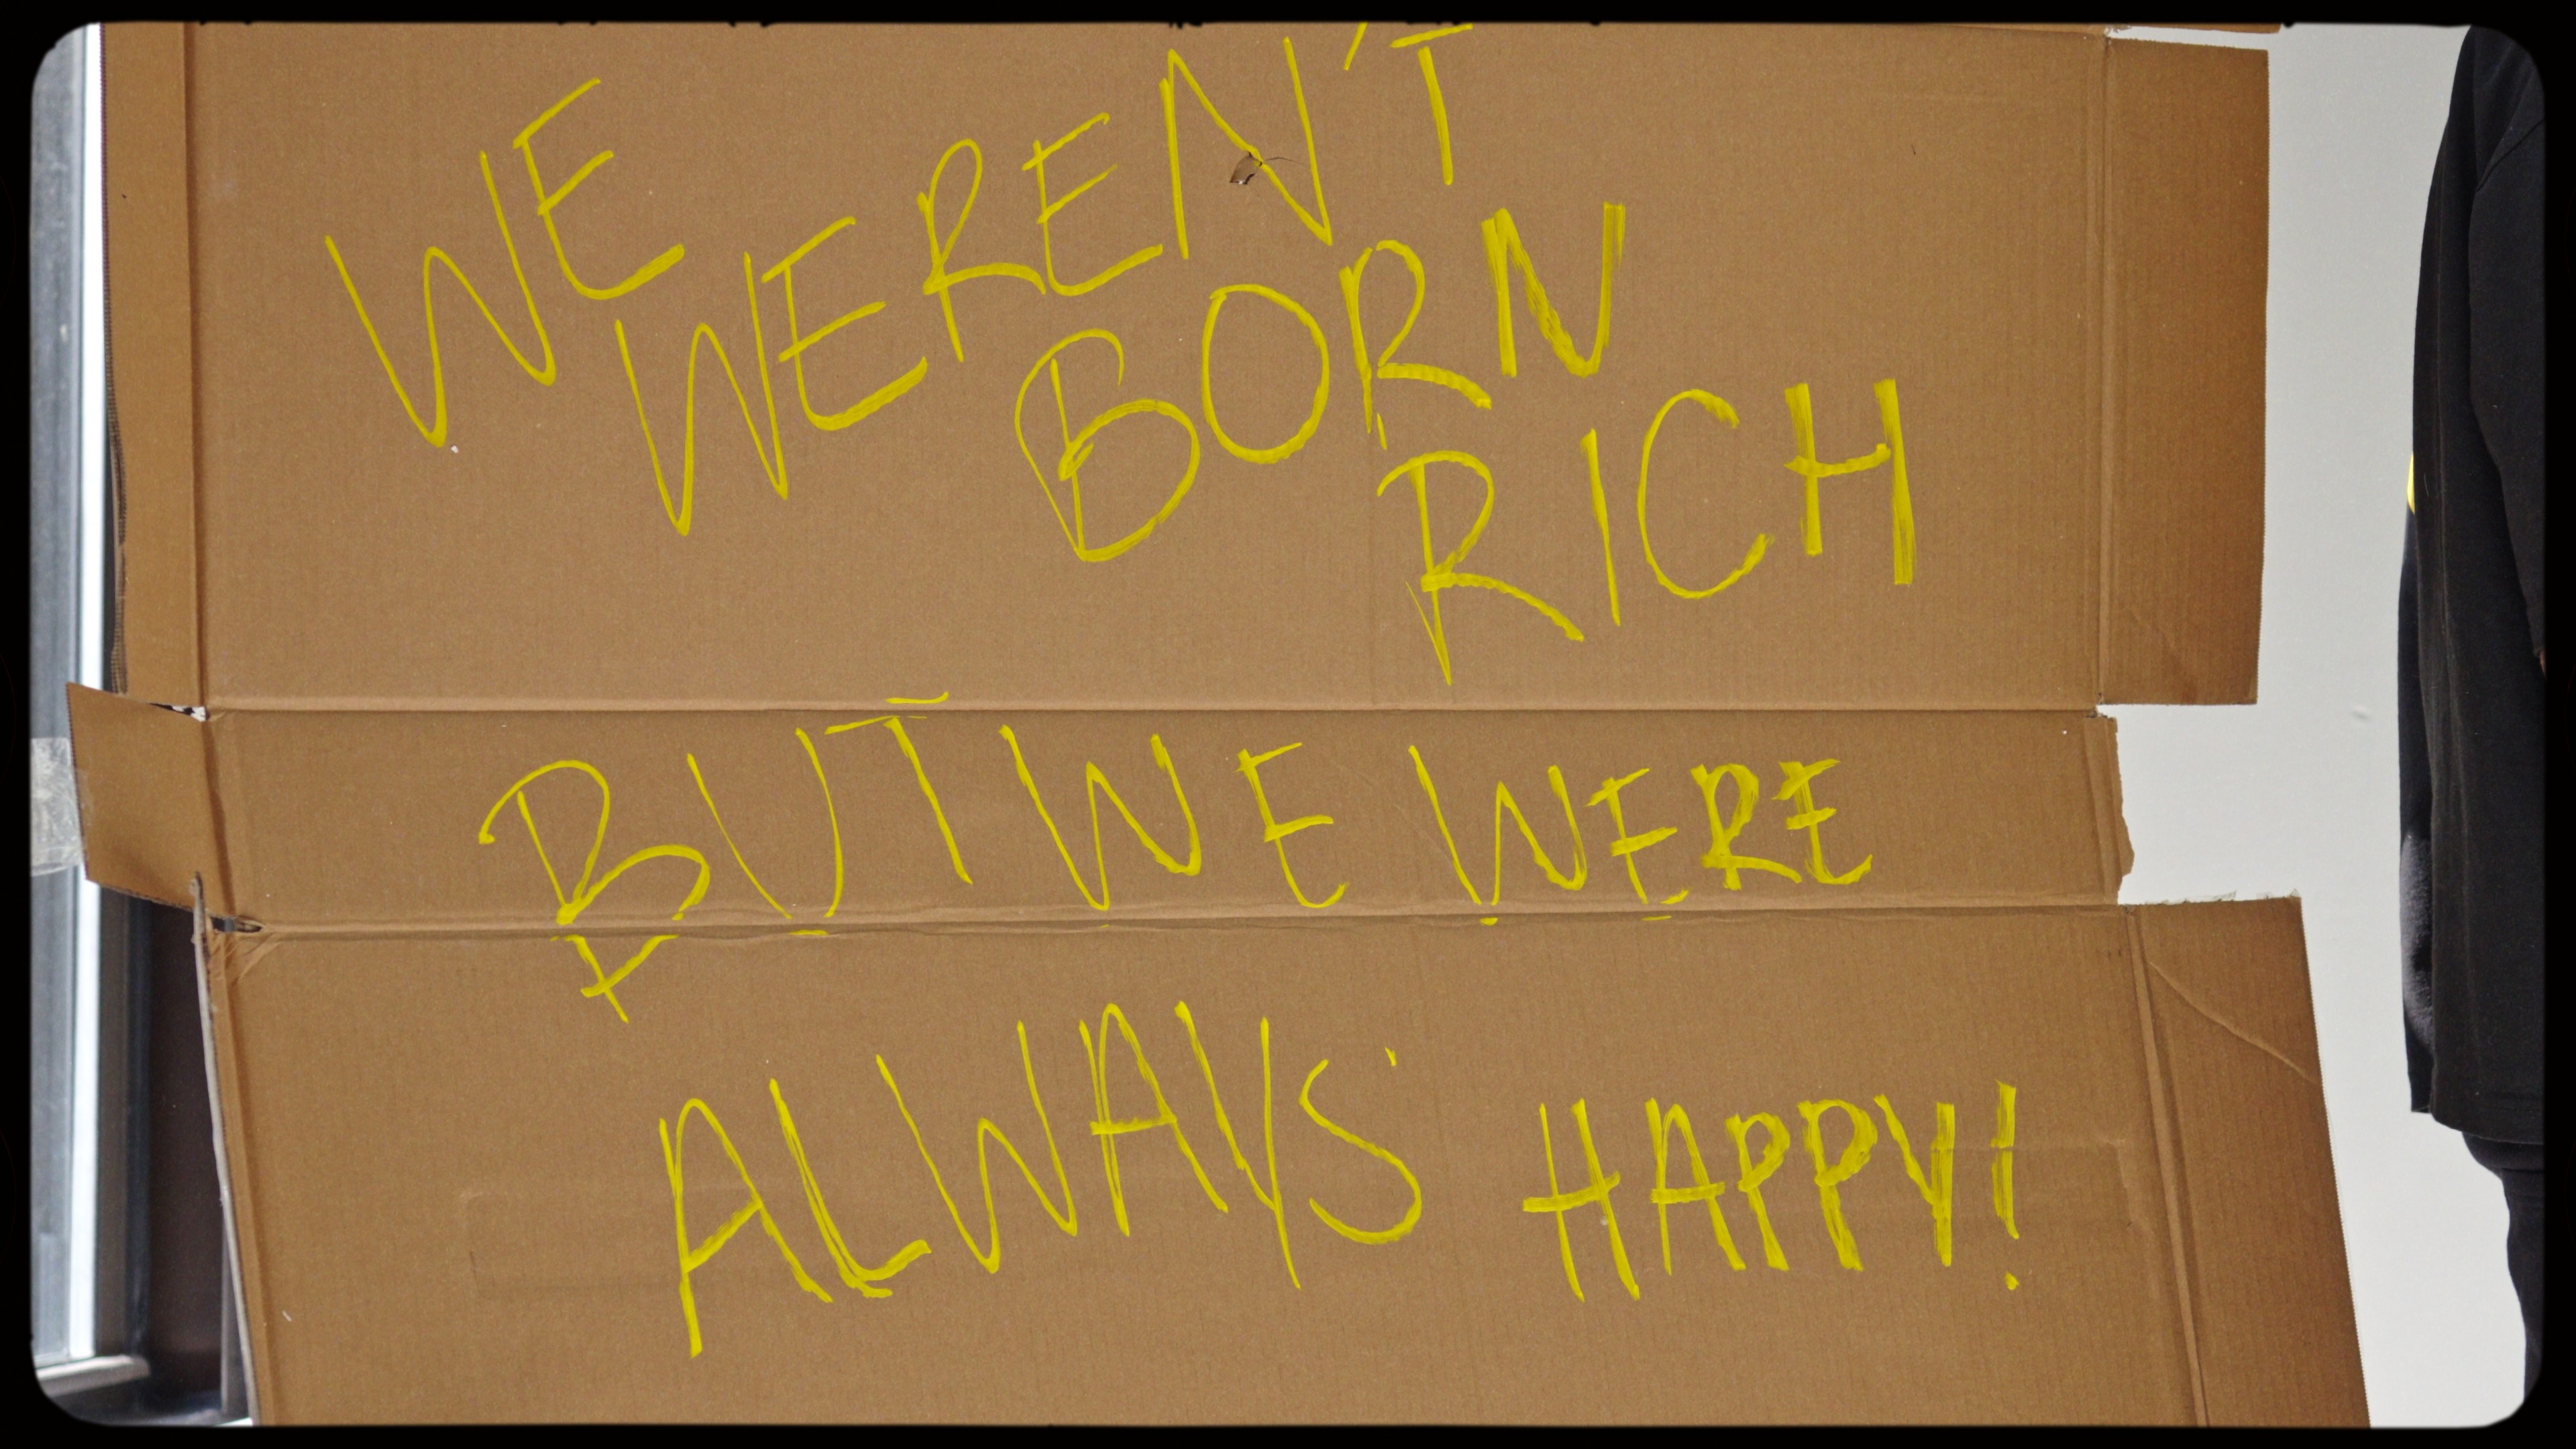 WE
WEREN'T
BORN
RICH
BUT WE WERE
ALWAYS HAPPY!